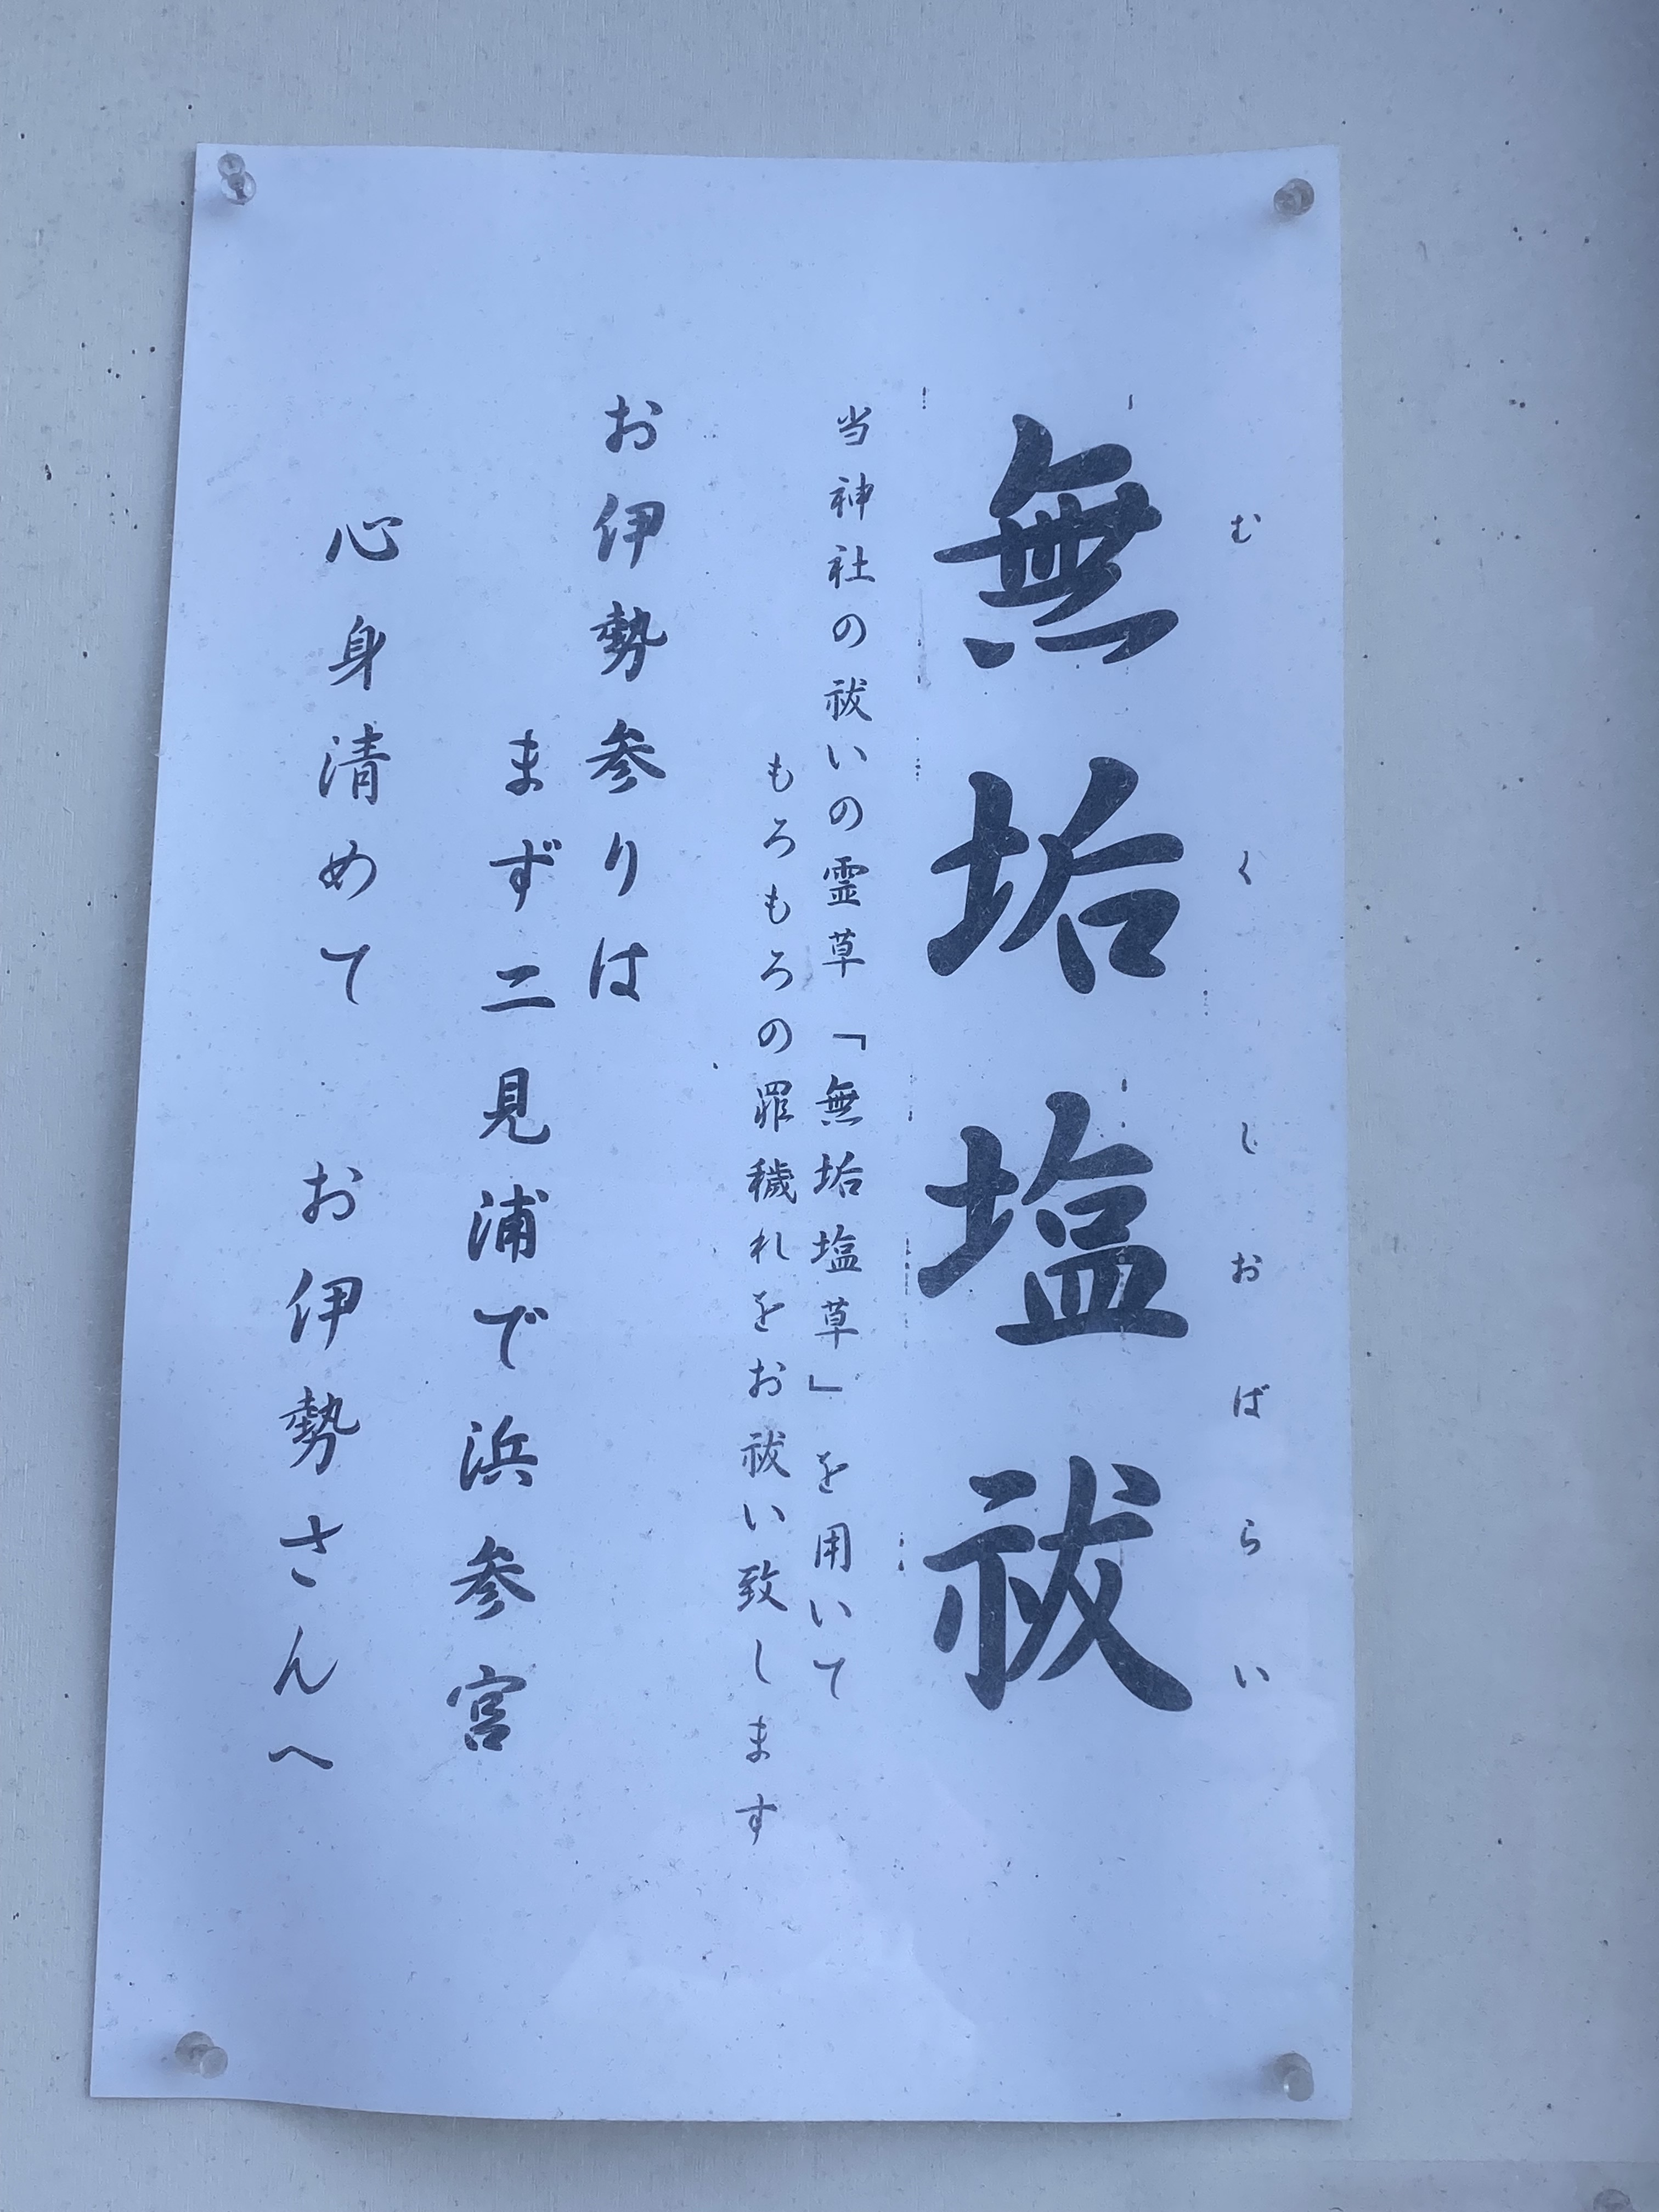 むくしおばらい
無垢塩祓
当神社の祓いの霊草「無垢塩草」を用いて
もろもろの罪穢れをお祓い致します
お伊勢参りは
まず二見浦で浜参宮
心身清めて お伊勢さんへ